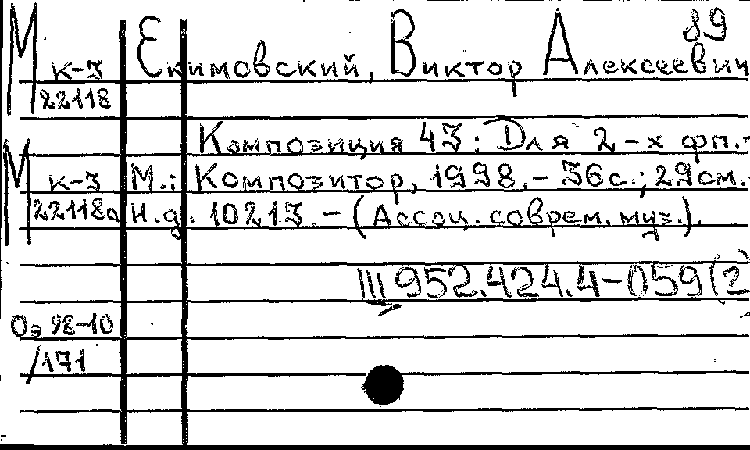 89
М к-3 Екимовский, Виктор Алексеевич
22118
Композиция 43: Для 2-х фп.-
М к-3 М.: Композитор, 1998.- 36с.; 29см.-
22118а Н.д. 10213.- (Ассоц. соврем. муз.).
Ш 952.424.4-059(2
Оэ 98-10
/171